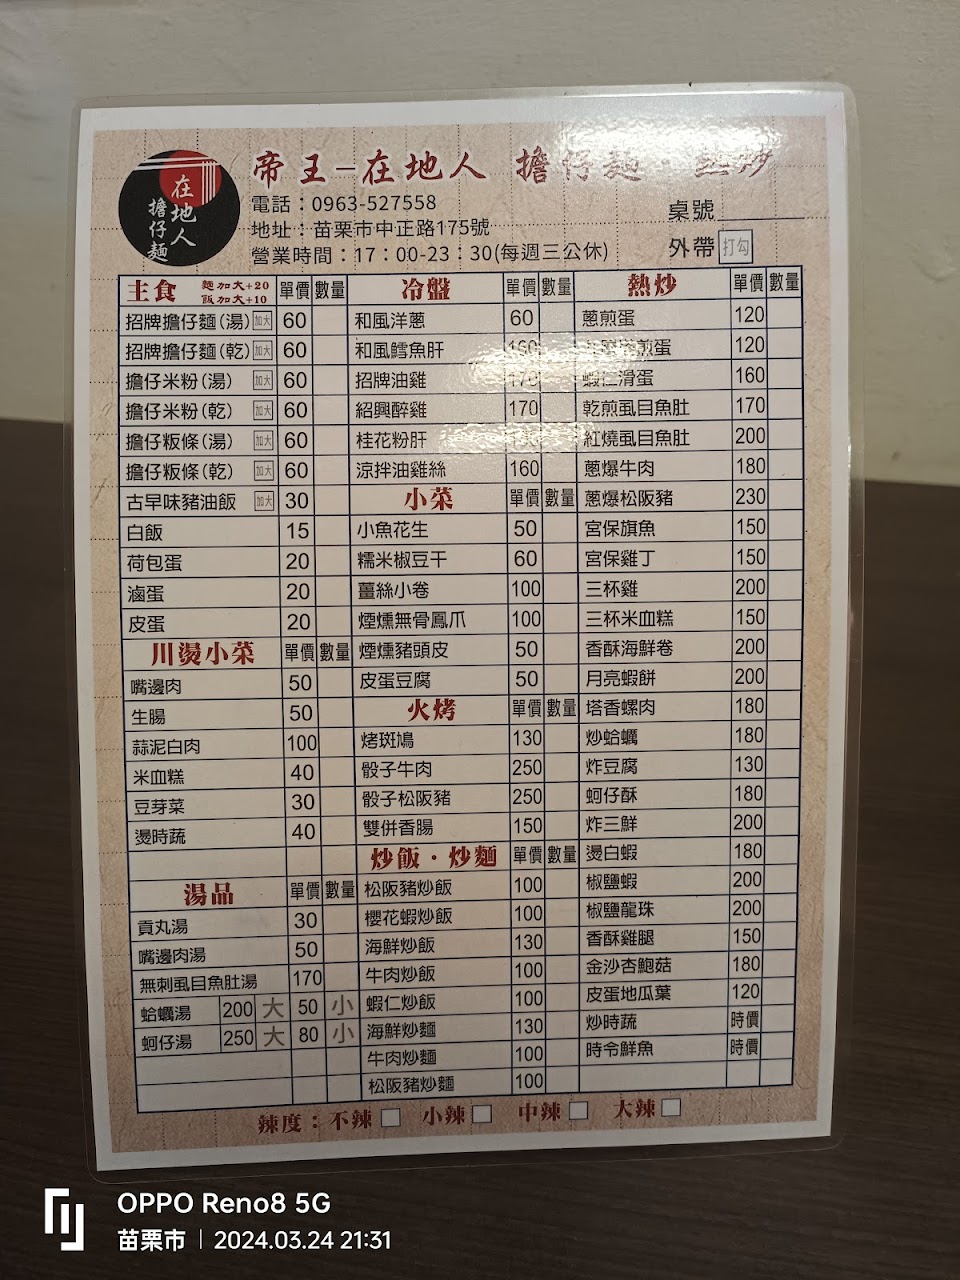 帝王-在地人 擔仔麵·熱炒
在地人
擔仔麵
電話：0963-527558
地址：苗栗市中正路175號
營業時間：17：00-23：30(每週三公休)
桌號
外帶 打勾
主食 麵加大+20 飯加大+10 單價 數量
招牌擔仔麵(湯) 加大 60
招牌擔仔麵(乾) 加大 60
擔仔米粉(湯) 加大 60
擔仔米粉(乾) 加大 60
擔仔粄條(湯) 加大 60
擔仔粄條(乾) 加大 60
古早味豬油飯 加大 30
白飯 15
荷包蛋 20
滷蛋 20
皮蛋 20
川燙小菜 單價 數量
嘴邊肉 50
生腸 50
蒜泥白肉 100
米血糕 40
豆芽菜 30
燙時蔬 40
湯品 單價 數量
貢丸湯 30
嘴邊肉湯 50
無刺虱目魚肚湯 170
蛤蠣湯 200 大 50 小
蚵仔湯 250 大 80 小
冷盤 單價 數量
和風洋蔥 60
和風鱈魚肝 160
招牌油雞 170
紹興醉雞 170
桂花粉肝
涼拌油雞絲 160
小菜 單價 數量
小魚花生 50
糯米椒豆干 60
薑絲小卷 100
煙燻無骨鳳爪 100
煙燻豬頭皮 50
皮蛋豆腐 50
火烤 單價 數量
烤斑鳩 130
骰子牛肉 250
骰子松阪豬 250
雙併香腸 150
炒飯·炒麵 單價 數量
松阪豬炒飯 100
櫻花蝦炒飯 100
海鮮炒飯 130
牛肉炒飯 100
蝦仁炒飯 100
海鮮炒麵 130
牛肉炒麵 100
松阪豬炒麵 100
熱炒 單價 數量
蔥煎蛋 120
煎蛋 120
蝦仁滑蛋 160
乾煎虱目魚肚 170
紅燒虱目魚肚 200
蔥爆牛肉 180
蔥爆松阪豬 230
宮保旗魚 150
宮保雞丁 150
三杯雞 200
三杯米血糕 150
香酥海鮮卷 200
月亮蝦餅 200
塔香螺肉 180
炒蛤蠣 180
炸豆腐 130
蚵仔酥 180
炸三鮮 200
燙白蝦 180
椒鹽蝦 200
椒鹽龍珠 200
香酥雞腿 150
金沙杏鮑菇 180
皮蛋地瓜葉 120
炒時蔬 時價
時令鮮魚 時價
辣度：不辣 小辣 中辣 大辣
OPPO Reno8 5G
苗栗市 | 2024.03.24 21:31